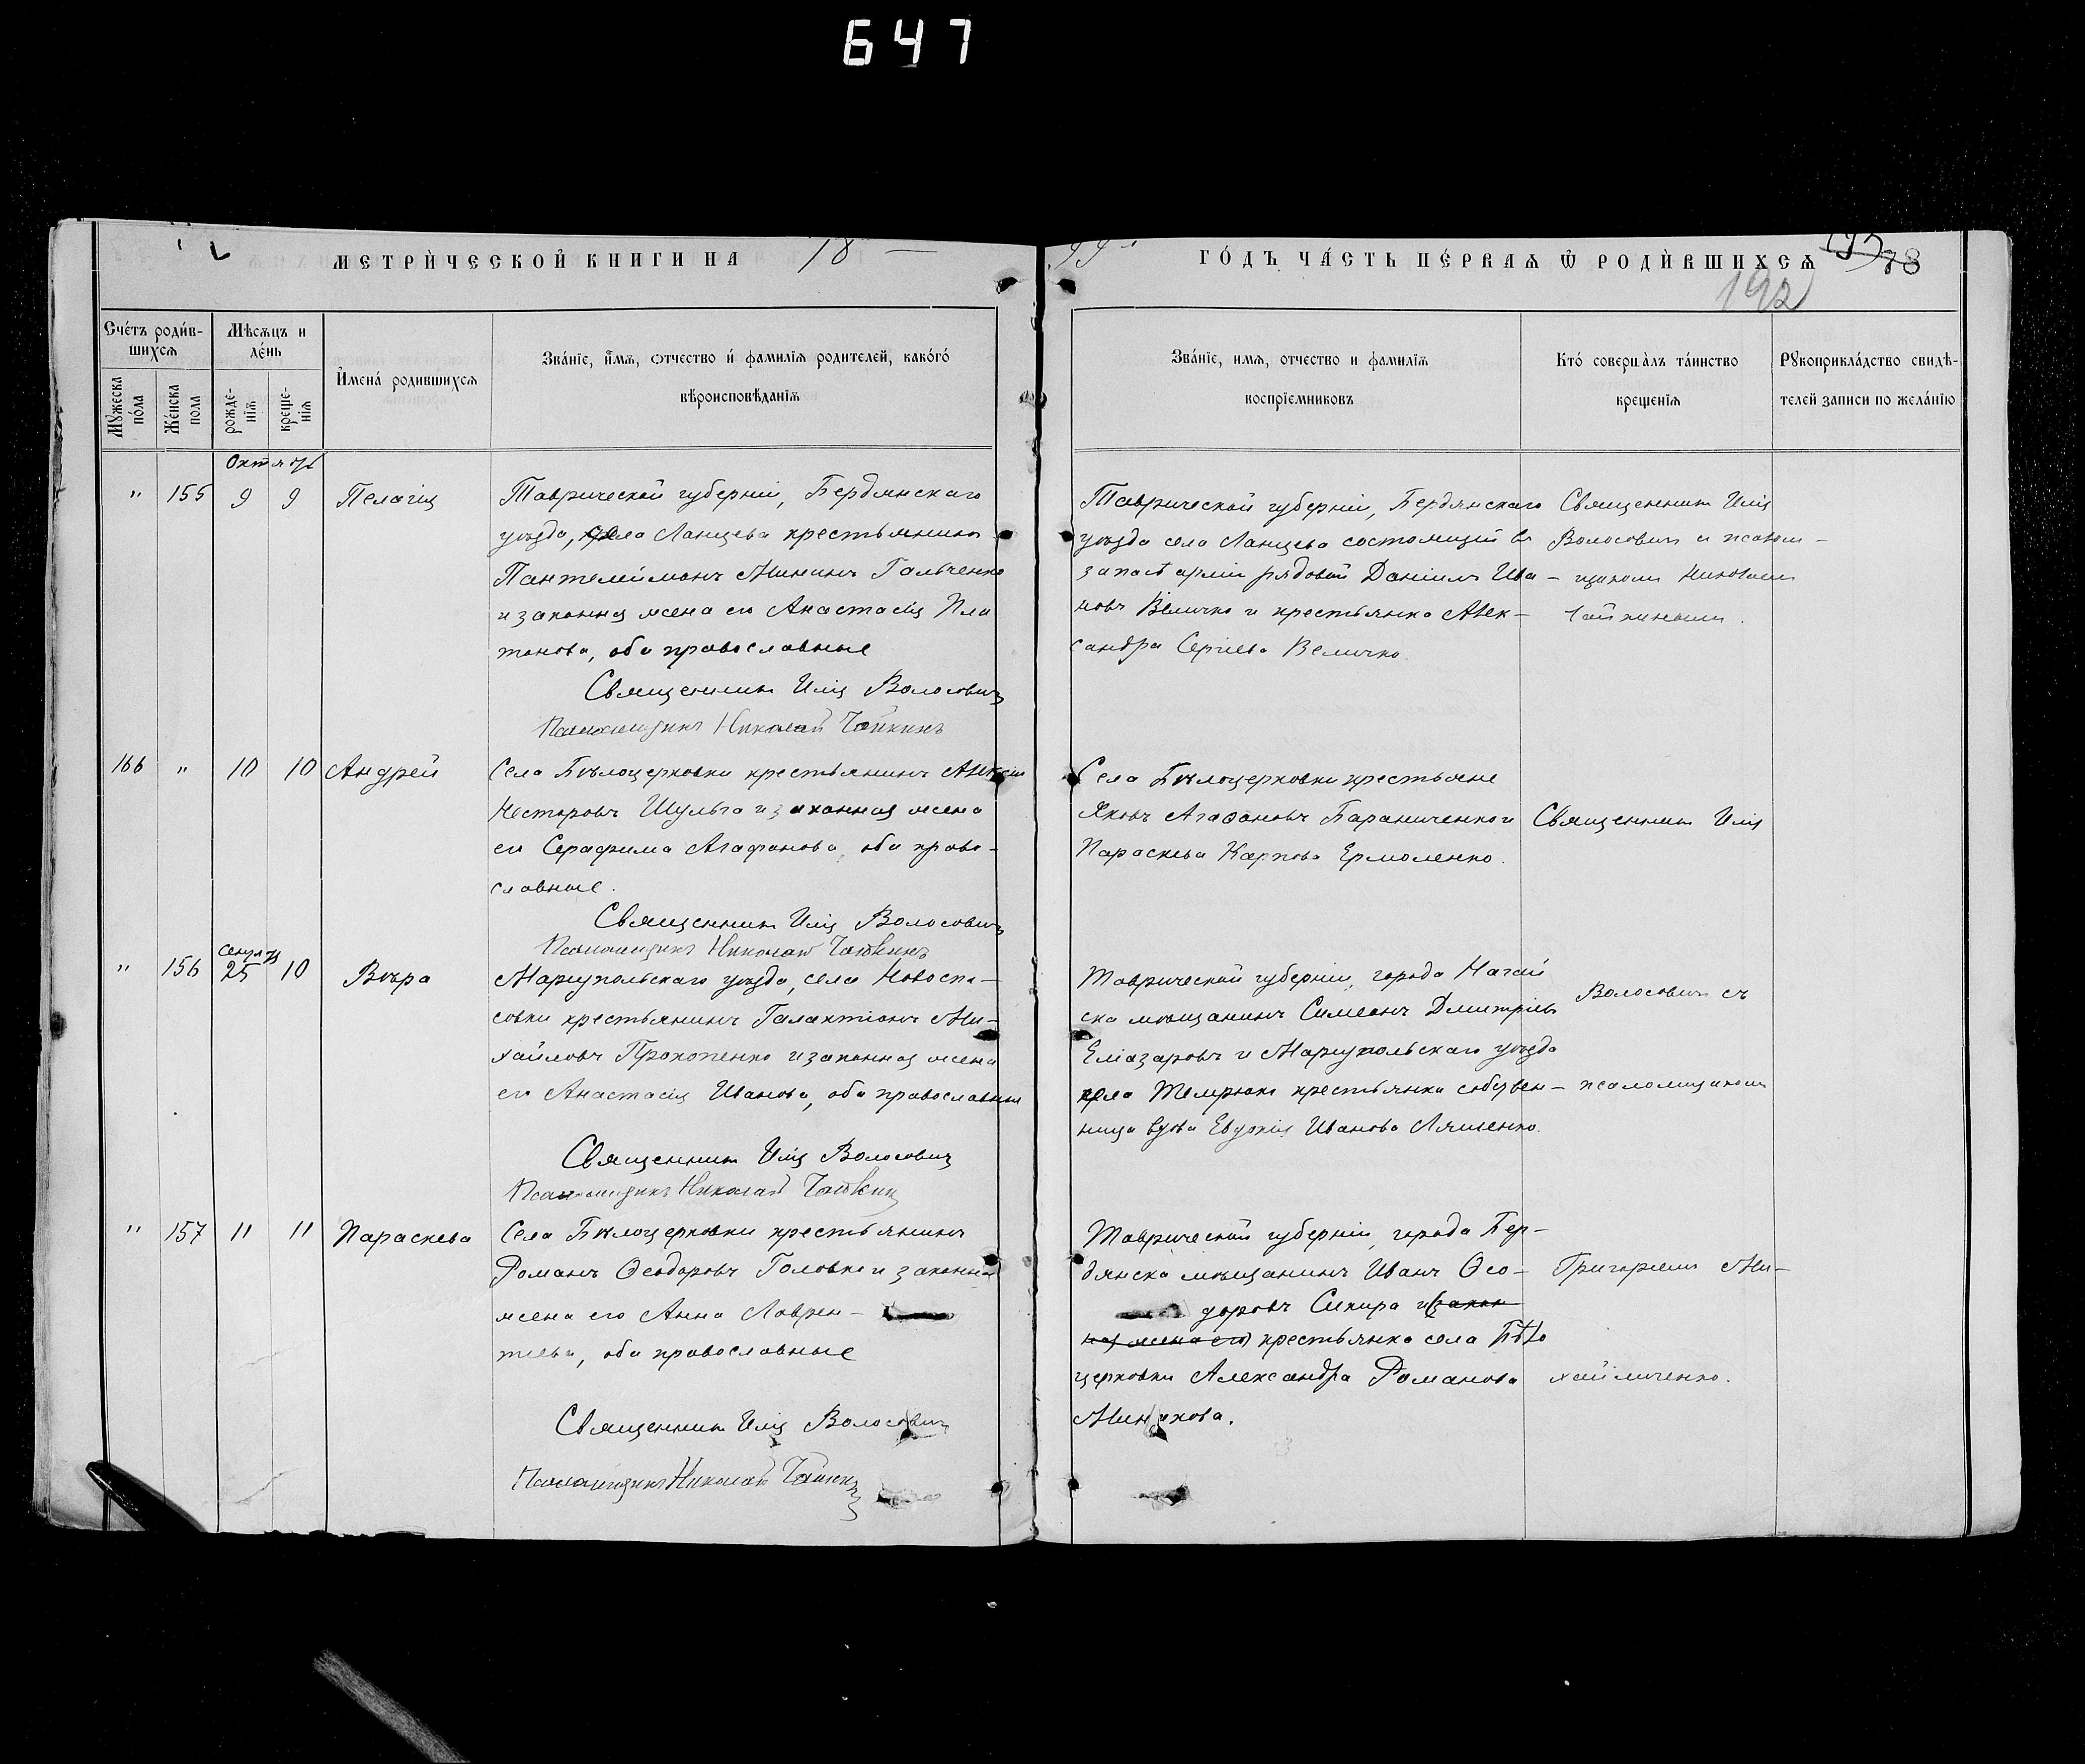 647
МЕТРИЧЕСКОЙ КНИГИ НА 18
99 ГОДЪ ЧАСТЬ ПЕРВАЯ Ѡ РОДИВШИХСЯ
78
192
Счетъ родив-
шихся
Мужеска пола
Женска пола
Мѣсяцъ и
день
рожде-
нія
креще-
нія
Имена родившихся
Званіе, имя, отчество и фамилія родителей, какого
вѣроисповѣданія
Званіе, имя, отчество и фамилія
воспріемниковъ
Кто совершалъ таинство
крещенія
Рукоприкладство свидѣ-
телей записи по желанію
Октябрь
" 155 9 9 Пелагія
Таврической губерніи, Бердянскаго
уѣзда, села Ланцева крестьянинъ
Пантелеймонъ Мининъ Гальченко
и законная жена его Анастасія Пла
тонова, оба православные
Священникъ Илія Волосовичъ
Псаломщикъ Николай Чайкинъ
Таврической губерніи, Бердянскаго
уѣзда села Ланцева состоящій въ
запасѣ арміи рядовой Даніилъ Ива-
новъ Величко и крестьянка Алек-
сандра Сергіева Величко.
Священникъ Илія
Волосовичъ и псалом-
щикомъ Николаем
Чайкинымъ.
166 " 10 10 Андрей
Села Бѣлоцерковки крестьянинъ Алексій
Несторовъ Шульга и законная жена
его Серафима Агафонова, оба право-
славные.
Священникъ Илія Волосовичъ
Псаломщикъ Николай Чайкинъ
Села Бѣлоцерковки крестьяне
Яковъ Агафоновъ Бараниченко и
Параскева Карпова Ермоленко.
Священникъ Илія
Сентяб
" 156 25 10 Вѣра
Маріупольскаго уѣзда, села Новоспа-
совки крестьянинъ Галактіонъ Ми-
хайловъ Прокопенко и законная жена
его Анастасія Иванова, оба православные
Священникъ Илія Волосовичъ
Псаломщикъ Николай Чайкинъ
Таврической губерніи, города Ногай
ска мѣщанинъ Симеонъ Дмитріевъ
Еліазаровъ и Маріупольскаго уѣзда
села Темрюка крестьянка собствен-
ница вдова Евдокія Иванова Ляшенко.
Волосовичъ съ
псаломщикомъ
" 157 11 11 Параскева
Села Бѣлоцерковки крестьянинъ
Романъ Ѳеодоровъ Головко и законная
жена его Анна Лаврен-
тьева, оба православные
Священникъ Илія Волосовичъ
Псаломщикъ Николай Чайкинъ
Таврической губерніи, города Бер-
дянска мѣщанинъ Иванъ Ѳео-
доровъ Сикира и закон
ная жена его крестьянка села Бѣло
церковки Александра Романова
Григоріемъ Ми-
хайличенко.